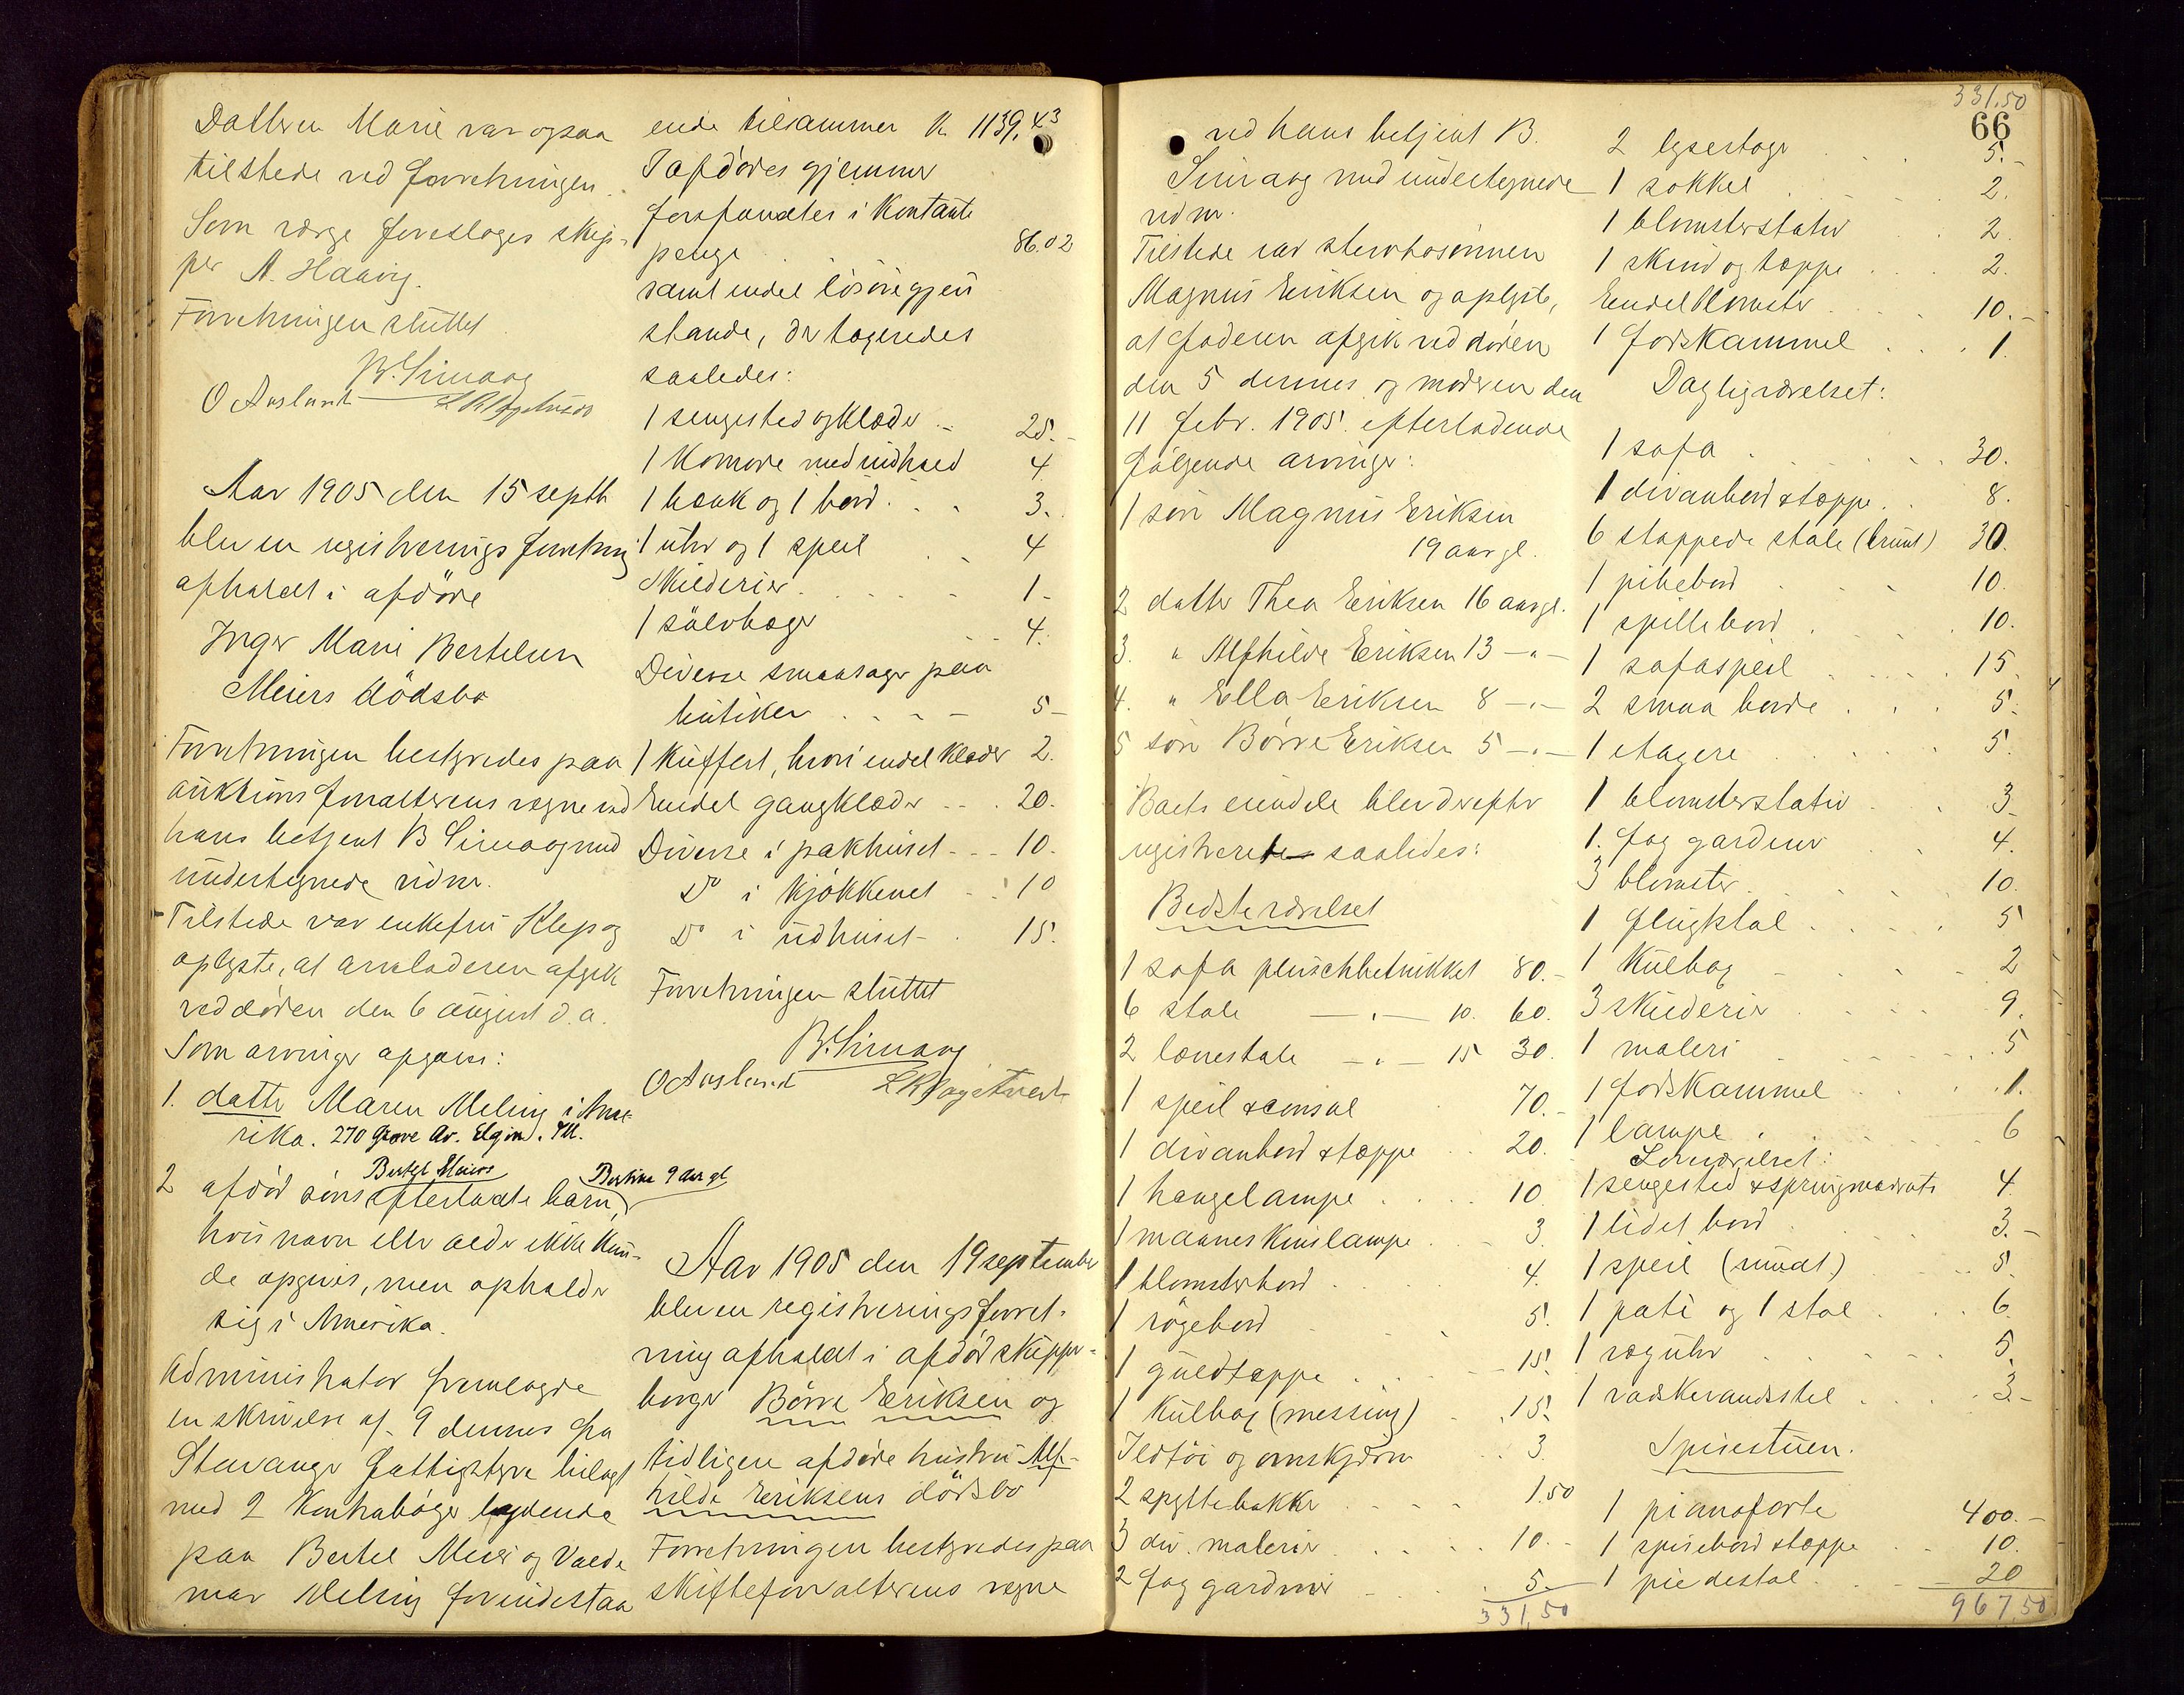 Datteren Marie var ogsaa
tilstede ved forretningen.
Som verge foresloges skip-
per A. Haavig.
Forretningen sluttet
B. Simaog
O Ausland
Aar 1905 den 15 septb
blev en registreringsforretning
afholdt i afdöde
Inger Marie Bertelsen
Meiers dödsbo
Forretningen bestyredes paa
auktionsforvalterens vegne ved
hans betjent B Simaog med
undertegnede vidne.
Tilstede var enkefru Klep og
oplyste, at arveladeren afgik
ved döden den 6 august d.a.
Som arvinger opgaves:
1. datter Maren Meling i Ame-
rika. 270 Grove Av. Elgin. Ill.
2 afdöd söns Bertel Meiers efterladte barn, Bertine 9 aar gl
hvis navn eller alder ikke kun-
de opgives, men opholder
sig i Amerika.
Administrator fremlagde
en skrivelse af 9 dennes fra
Stavanger fattigstyre bilagt
med 2 kontrabøger lydende
paa Bertel Meier og Valde
mar Meling forindestaa
ende tilsammen kr. 1139.43
I afdödes gjemmer
forefandtes i kontante
penge 86.02
samt endel lösöregjen
stande, der tageredes
saaledes:
1 sengested og klæder 25.-
1 komode med indhold 4
1 bænk og 1 bord 3.
1 uhr og 1 speil 4
Skilderier 1-
1 sölvbæger 4.
Diverse smaasager paa
butiken 5-
1 kuffert, hvori endel klæder 2.
Endel gangklæder 20.
Diverse i pakhuset 10.
Do i kjökkenet 10
Do i udhuset 15.
Forretningen sluttet
B. Simaog
O Ausland
Aar 1905 den 19 september
blev en registreringsforret-
ning afholdt i afdöd skipper-
borger Börre Eriksen og
tidligere afdöde hustru Alf-
hilde Eriksens dödsbo
Forretningen bestyredes paa
skifteforvalterens vegne
ved hans betjent B.
Simaog med undertegnede
vidne.
Tilstede var stervbosönnen
Magnus Eriksen og oplyste,
at faderen afgik ved döden
den 5 dennes og moderen den
11 febr. 1905. efterladende
følgende arvinger:
1 sön Magnus Eriksen
19 aar gl.
2 datter Thea Eriksen 16 aar gl.
3. " Alfhilde Eriksen 13 -"-
4. " Ella Eriksen 8 -"-
5 sön Börre Eriksen 5 -"-
Boets eiendele blev derefter
registreret saaledes:
Bedsteværelset
1 sofa pluschbetrukket 80.-
6 stole -"- 10. 60.
2 lænestole -"- 15 30.
1 speil & consol 70.-
1 divanbord & tæppe 20.
1 hængelampe 10.
1 maaneskinslampe 3.
1 blomsterbord 4.
1 rögebord 5.
1 guldtæppe 15.
1 kulbox (messing) 15.
Ildtöi og omskjerm 3.
2 spyttebakker 1.50
3 div. malerier 10.-
2 fag gardiner 5.-
331.50
331.50
66
2 lysestager 5.-
1 sokkel 2.
1 blomsterstativ 2
1 skind og tæppe 2.
Endel blomster 10.-
1 fodskammel 1.
Dagligværelset:
1 sofa 30.
1 divanbord & tæppe 8.
6 stoppede stole (brunt) 30.
1 pibebord 10.
1 spillebord 10.
1 sofaspeil 15.
2 smaa borde 5.
1 etagere 5.
1 blomsterstativ 3
1. fag gardiner 4.
3 blomster 10.
1 flugstol 5
1 kulbox 2
3 skilderier 9.
1 maleri 5
1 fodskammel 1.
1 lampe 6
Soveværelset:
1 sengested & springmadrats 4.
1 lidet bord 3.-
1 speil (rundt) 5.
1 puti og 1 stol 6.
1 væguhr 5.
1 vaskevandsstel 3.-
Spisestuen.
1 pianoforte 400.-
1 spisebord & tæppe 10.
1 piedestal 20
967.50